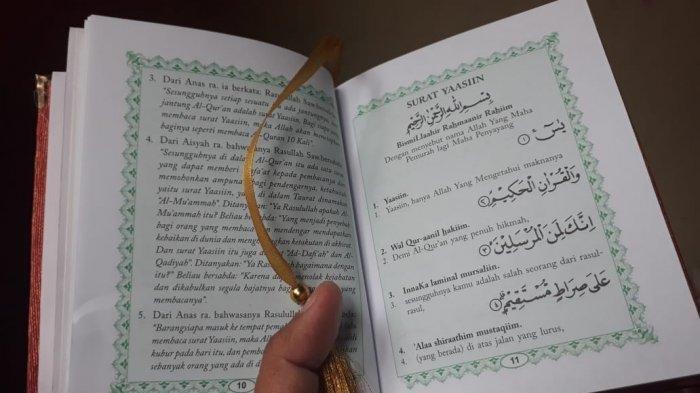 3. Dari Anas ra. ia berkata: Rasulullah Saw bersabda:
"Sesungguhnya setiap sesuatu ada jantungnya,
jantung Al-Qur'an adalah surat Yaasiin. Bagi siapa
membaca surat Yaasiin, maka Allah akan
baginya seperti membaca Qur'an 10 Kali".
4. Dari Aisyah ra. bahwasanya Rasulullah Saw bersabda:
"Sesungguhnya di dalam Al-Qur'an itu ada satu surat
yang dapat memberi syafa'at kepada pembacanya dan
memohonkan ampunan bagi pendengarnya, ketahuilah
yaitu surat Yaasiin, yang di dalam Taurat dinamai
"Al-Mu'ammah". Ditanyakan: "Ya Rasulullah apakah Al-
Mu'ammah itu? Beliau bersabda: "Yang menjadi penyebab
bagi orang yang membacanya mendapat
kebaikan di dunia dan ketakutan di akhirat.
Dan surat Yaasiin itu juga "Ad-Dafi'ah" dan Al-
Qadiyah". Ditanyakan: "Ya Rasulullah bagaimana dengan
itu?" Beliau bersabda: "Karena dapat menolak kejahatan
dan dikabulkan segala hajatnya bagi yang
membacanya".
5. Dari Anas ra. bahwasanya Rasulullah
"Barangsiapa masuk ke tempat
membaca surat Yaasiin, maka Allah
kubur pada hari itu, dan
sebanyak orang yang ada di
10
SURAT YAASIIN
بِسْمِ اللهِ الرَّحْمٰنِ الرَّحِيْمِ
Bismillaahir Rahmaanir Rahiim
Dengan menyebut nama Allah Yang Maha
Pemurah lagi Maha Penyayang
يٰسٓ ۚ ﴿١﴾
1. Yaasiin.
1. Yaasiin, hanya Allah Yang Mengetahui maknanya
وَالْقُرْاٰنِ الْحَكِيْمِۙ ﴿٢﴾
2. Wal Qur-aanil hakiim.
2. Demi Al-Qur'an yang penuh hikmah,
اِنَّكَ لَمِنَ الْمُرْسَلِيْنَۙ ﴿٣﴾
3. InnaKa laminal mursaliin.
3. sesungguhnya kamu adalah salah seorang dari rasul-
rasul,
عَلٰى صِرَاطٍ مُّسْتَقِيْمٍۗ ﴿٤﴾
4. 'Alaa shiraathim mustaqiim.
4. (yang berada) di atas jalan yang lurus,
11